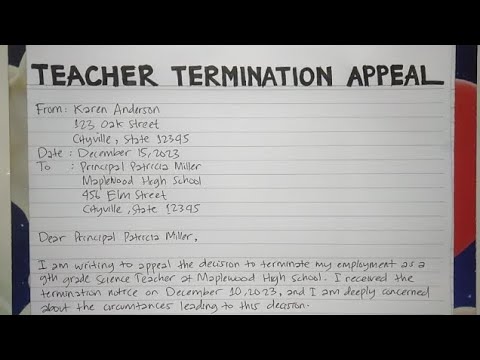 TEACHER TERMINATION APPEAL
From : Karen Anderson
123 Oak Street
Cityville, State 12345
Date : December 15, 2023
To : Principal Patricia Miller
Maplewood High School
456 Elm Street
Cityville, State 12345
Dear Principal Patricia Miller,
I am writing to appeal the decision to terminate my employment as a
9th grade Science Teacher at Maplewood High School. I received the
termination notice on December 10, 2023, and I am deeply concerned
about the circumtances leading to this decision.